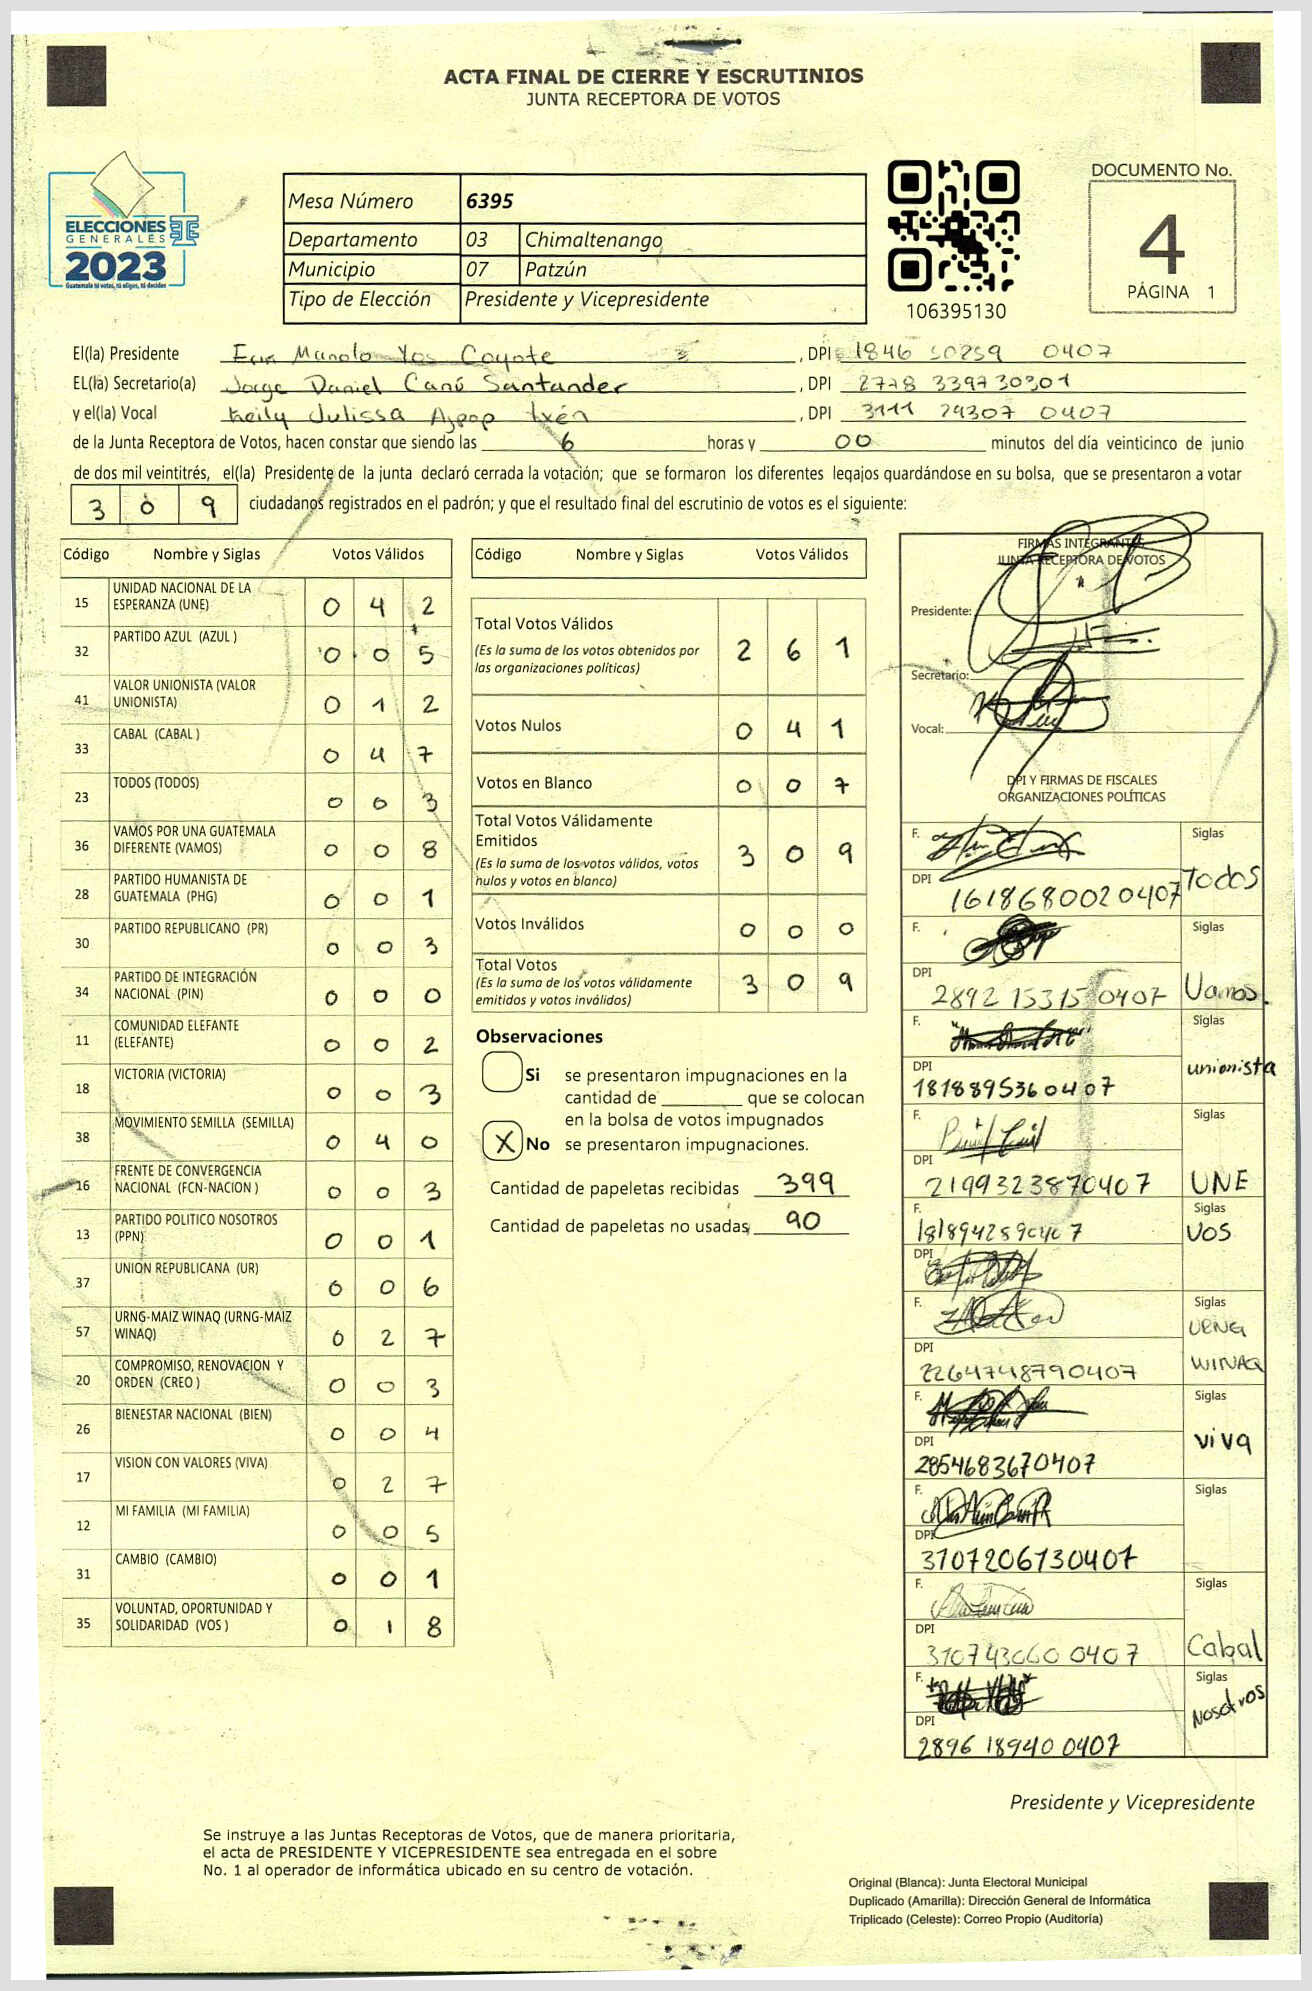 ACTA FINAL DE CIERRE Y ESCRUTINIOS
JUNTA RECEPTORA DE VOTOS
ELECCIONES
GENERALES
2023
Guatemala tú votas, tú eliges, tú decides
Mesa Número 6395
Departamento 03 Chimaltenango
Municipio 07 Patzún
Tipo de Elección Presidente y Vicepresidente
106395130
DOCUMENTO No.
4
PÁGINA 1
El(la) Presidente Manolo Yos Coyote , DPI 1846 50259 0407
EL(la) Secretario(a) Jorge Daniel Canú Santander , DPI 2778 339730301
y el(la) Vocal Keily Julissa Ajpop Ixén , DPI 3111 29307 0407
de la Junta Receptora de Votos, hacen constar que siendo las 6 horas y 00 minutos del día veinticinco de junio
de dos mil veintitrés, el(la) Presidente de la junta declaró cerrada la votación; que se formaron los diferentes legajos guardándose en su bolsa, que se presentaron a votar
3 0 9 ciudadanos registrados en el padrón; y que el resultado final del escrutinio de votos es el siguiente:
Código Nombre y Siglas Votos Válidos
15 UNIDAD NACIONAL DE LA ESPERANZA (UNE) 0 4 2
32 PARTIDO AZUL (AZUL ) 0 0 5
41 VALOR UNIONISTA (VALOR UNIONISTA) 0 1 2
33 CABAL (CABAL ) 0 4 7
23 TODOS (TODOS) 0 0 3
36 VAMOS POR UNA GUATEMALA DIFERENTE (VAMOS) 0 0 8
28 PARTIDO HUMANISTA DE GUATEMALA (PHG) 0 0 1
30 PARTIDO REPUBLICANO (PR) 0 0 3
34 PARTIDO DE INTEGRACIÓN NACIONAL (PIN) 0 0 0
11 COMUNIDAD ELEFANTE (ELEFANTE) 0 0 2
18 VICTORIA (VICTORIA) 0 0 3
38 MOVIMIENTO SEMILLA (SEMILLA) 0 4 0
16 FRENTE DE CONVERGENCIA NACIONAL (FCN-NACION ) 0 0 3
13 PARTIDO POLITICO NOSOTROS (PPN) 0 0 1
37 UNION REPUBLICANA (UR) 0 0 6
57 URNG-MAIZ WINAQ (URNG-MAIZ WINAQ) 0 2 7
20 COMPROMISO, RENOVACION Y ORDEN (CREO ) 0 0 3
26 BIENESTAR NACIONAL (BIEN) 0 0 4
17 VISION CON VALORES (VIVA) 0 2 7
12 MI FAMILIA (MI FAMILIA) 0 0 5
31 CAMBIO (CAMBIO) 0 0 1
35 VOLUNTAD, OPORTUNIDAD Y SOLIDARIDAD (VOS ) 0 1 8
Código Nombre y Siglas Votos Válidos
Total Votos Válidos 2 6 1
(Es la suma de los votos obtenidos por
las organizaciones políticas)
Votos Nulos 0 4 1
Votos en Blanco 0 0 7
Total Votos Válidamente
Emitidos 3 0 9
(Es la suma de los votos válidos, votos
nulos y votos en blanco)
Votos Inválidos 0 0 0
Total Votos 3 0 9
(Es la suma de los votos válidamente
emitidos y votos inválidos)
Observaciones
Si se presentaron impugnaciones en la
cantidad de ________ que se colocan
en la bolsa de votos impugnados
X No se presentaron impugnaciones.
Cantidad de papeletas recibidas 399
Cantidad de papeletas no usadas 90
FIRMAS INTEGRANTES
JUNTA RECEPTORA DE VOTOS
Presidente:
Secretario:
Vocal:
DPI Y FIRMAS DE FISCALES
ORGANIZACIONES POLÍTICAS
F. Siglas
DPI 1618680020407 Todos
F. Siglas
DPI 2892 15315 0407 Vamos.
F. Siglas
DPI 1818895360407 unionista
F. Siglas
DPI 2199323870407 UNE
F. 1818942890407 Siglas
DPI VOS
F. Siglas
URNG
DPI 2264748790407 WINAQ
F. Siglas
DPI 2854683670407 viva
F. Siglas
DPI 3107206730407
F. Siglas
DPI 310743060 0407 Cabal
F. Siglas
DPI 2896 18940 0407 Nosotros
Presidente y Vicepresidente
Se instruye a las Juntas Receptoras de Votos, que de manera prioritaria,
el acta de PRESIDENTE Y VICEPRESIDENTE sea entregada en el sobre
No. 1 al operador de informática ubicado en su centro de votación.
Original (Blanca): Junta Electoral Municipal
Duplicado (Amarilla): Dirección General de Informática
Triplicado (Celeste): Correo Propio (Auditoría)